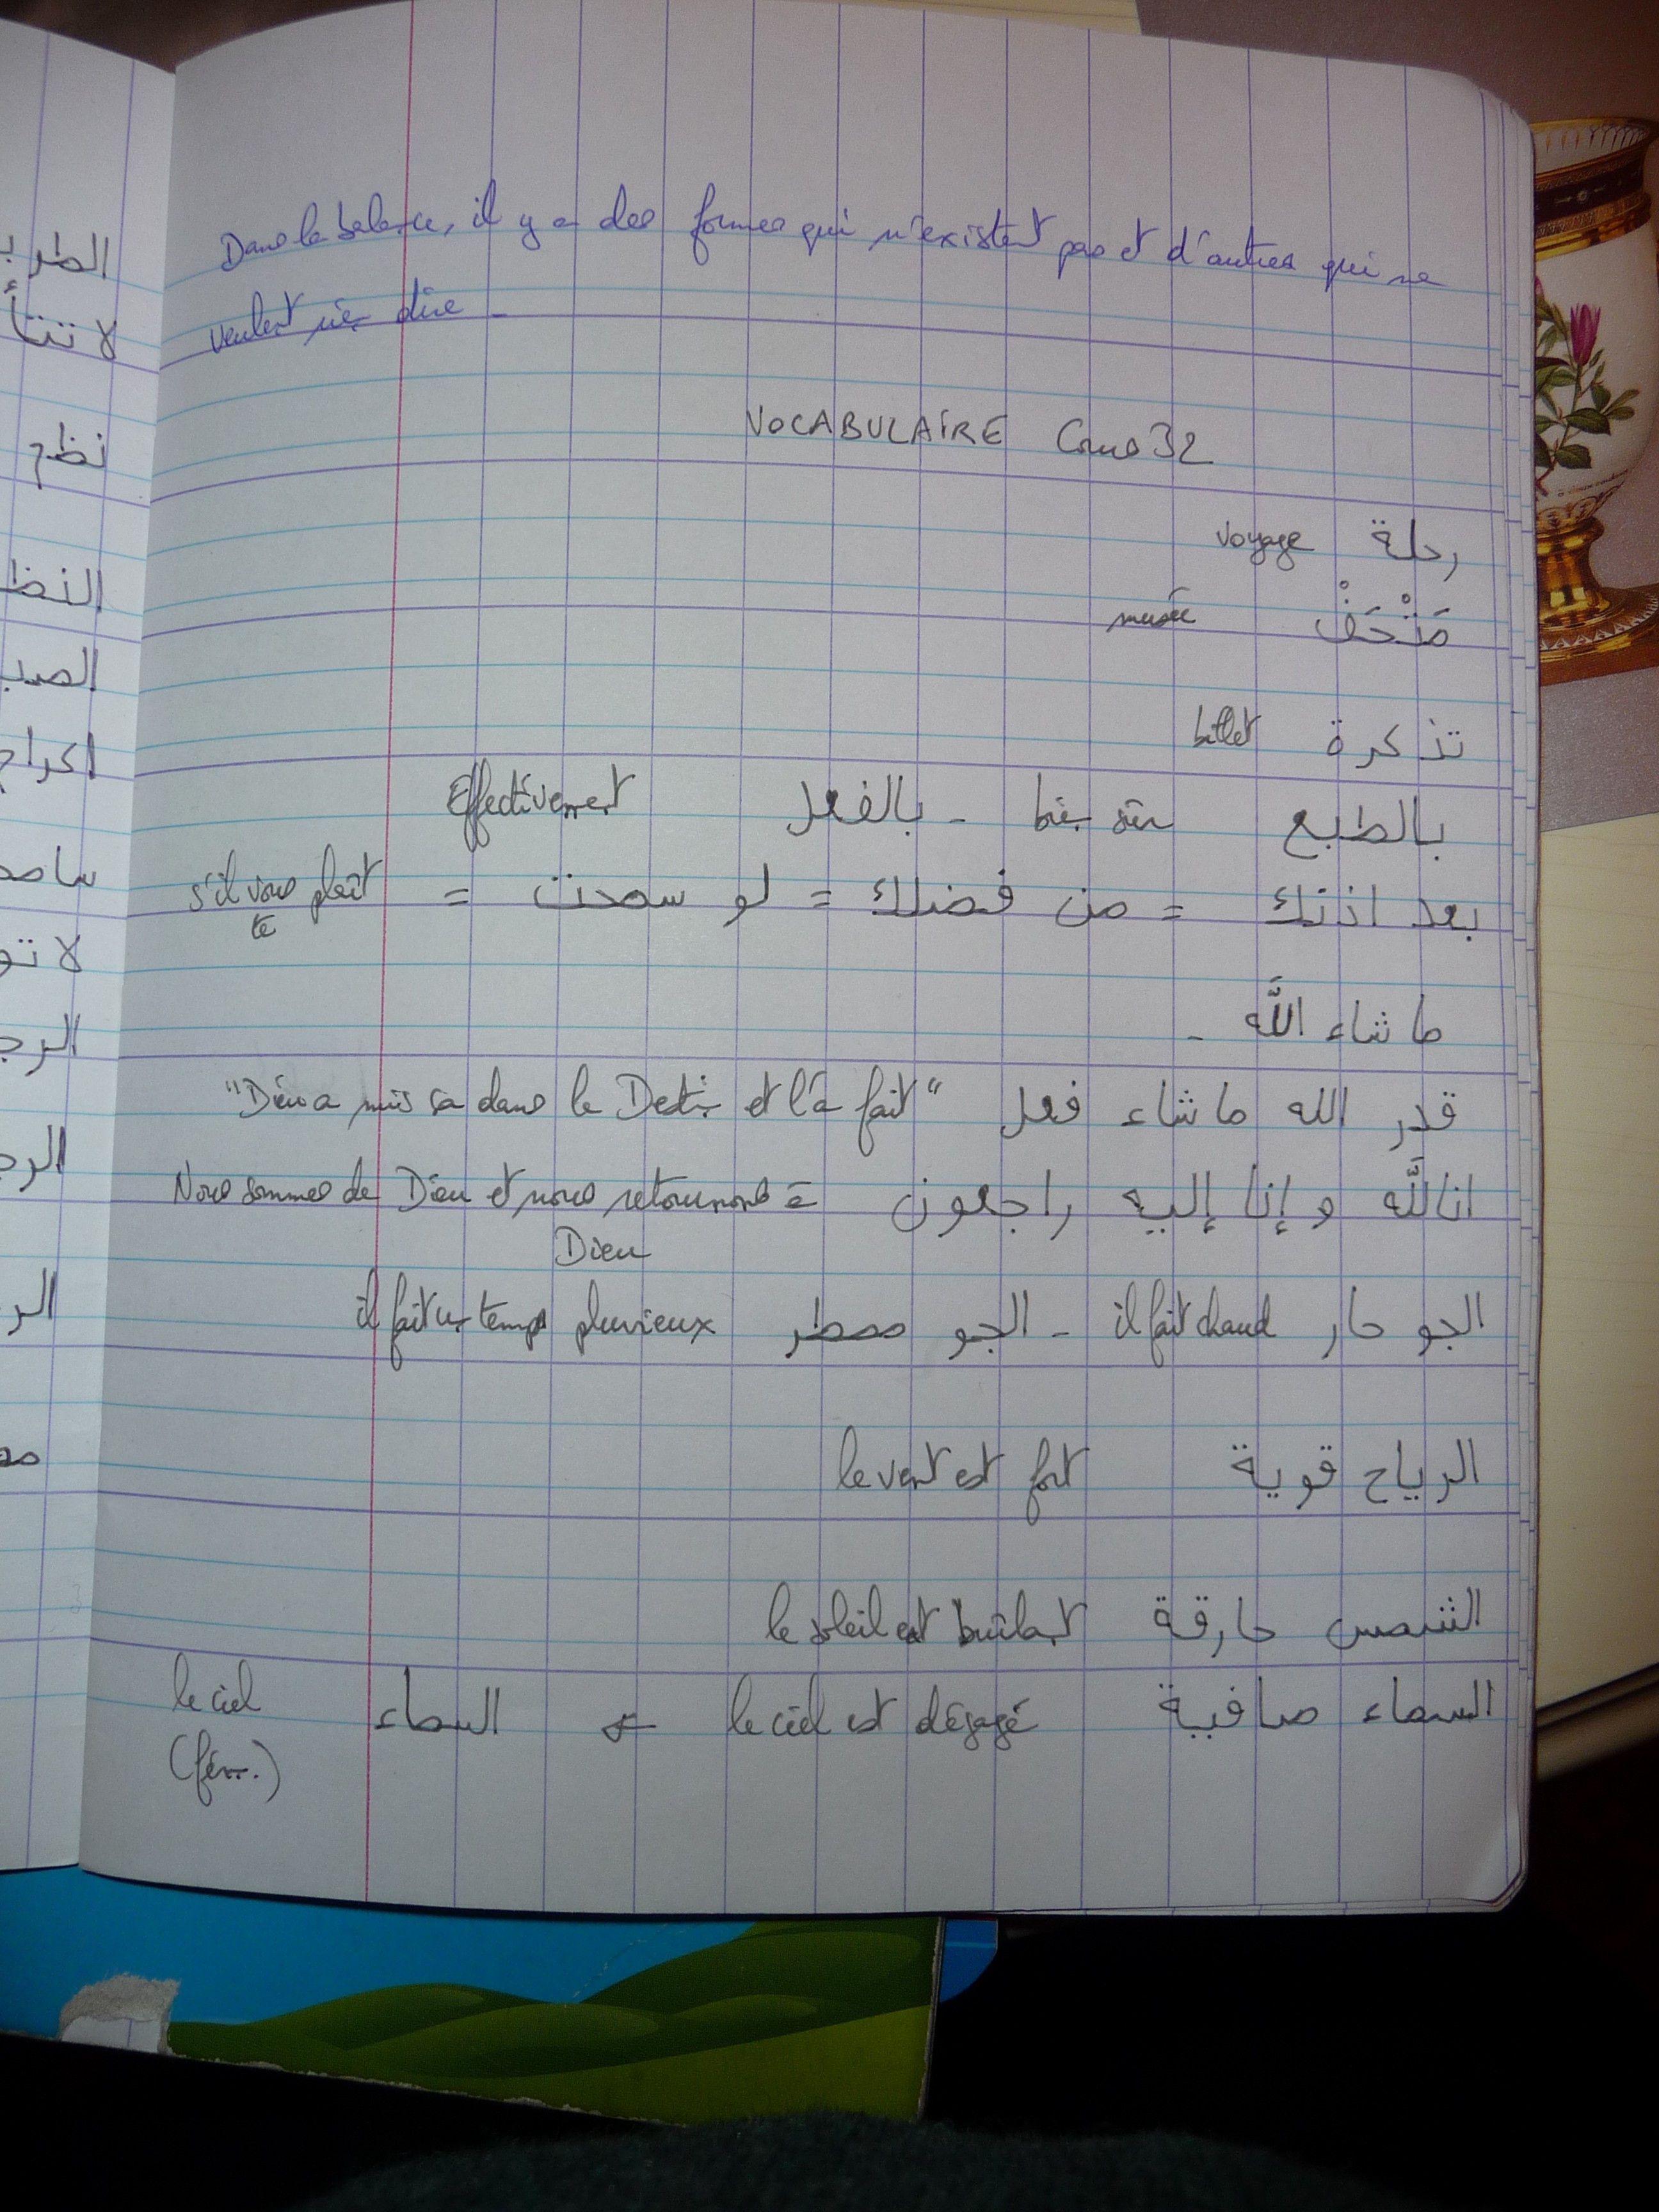 الطر
لا تتأ
نظم
النظ
الصد
اكراه
سامح
لا تو
الرج
الرج
الر
Dans la balance, il y a des formes qui n'existent pas et d'autres qui ne
veulent rien dire -
VOCABULAIRE Cours 32
رحلة voyage
مَتْحَفْ musée
تذكرة billet
بالطبع - بالفعل Effectivement
بعد اذنك = من فضلك = لو سمحت = s'il vous plaît
te
ما شاء اللَّه -
قدر الله ما شاء فعل "Dieu a mis ça dans le Destin et l'a fait"
انا للَّه و إنا إليه راجعون Nous sommes de Dieu et nous retournons à
Dieu
الجو حار il fait chaud - الجو ممطر il fait un temps pluvieux
الرياح قوية le vent est fort
الشمس حارقة le soleil est brûlant
السماء صافية le ciel est dégagé السماء le ciel
(fém.)